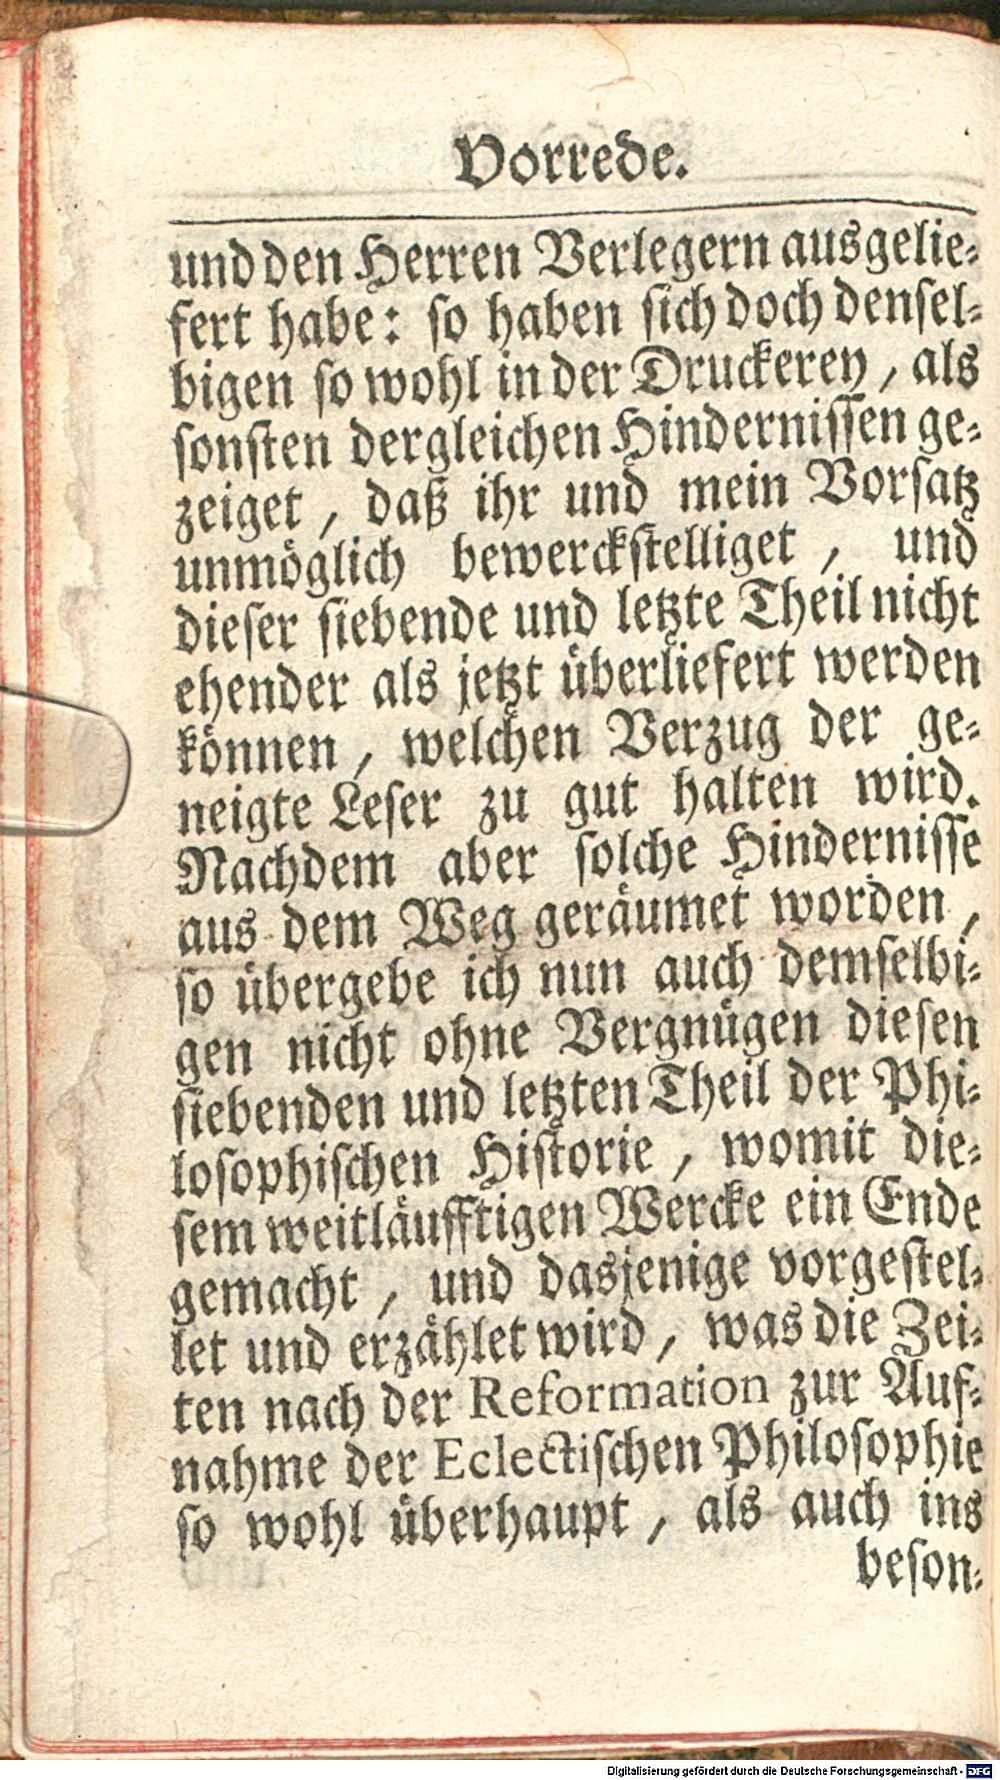 Vorrede.
und den Herren Verlegern ausgelie-
fert habe: so haben sich doch densel-
bigen so wohl in der Druckerey, als
sonsten dergleichen Hindernissen ge-
zeiget, daß ihr und mein Vorsatz
unmöglich bewerckstelliget, und
dieser siebende und letzte Theil nicht
ehender als jetzt überliefert werden
können, welchen Verzug der ge-
neigte Leser zu gut halten wird.
Nachdem aber solche Hindernisse
aus dem Weg geräumet worden,
so übergebe ich nun auch demselbi-
gen nicht ohne Vergnügen diesen
siebenden und letzten Theil der Phi-
losophischen Historie, womit die-
sem weitläufftigen Wercke ein Ende
gemacht, und dasjenige vorgestel-
let und erzählet wird, was die Zei-
ten nach der Reformation zur Auf-
nahme der Eclectischen Philosophie
so wohl überhaupt, als auch ins
beson-
Digitalisierung gefördert durch die Deutsche Forschungsgemeinschaft - DFG